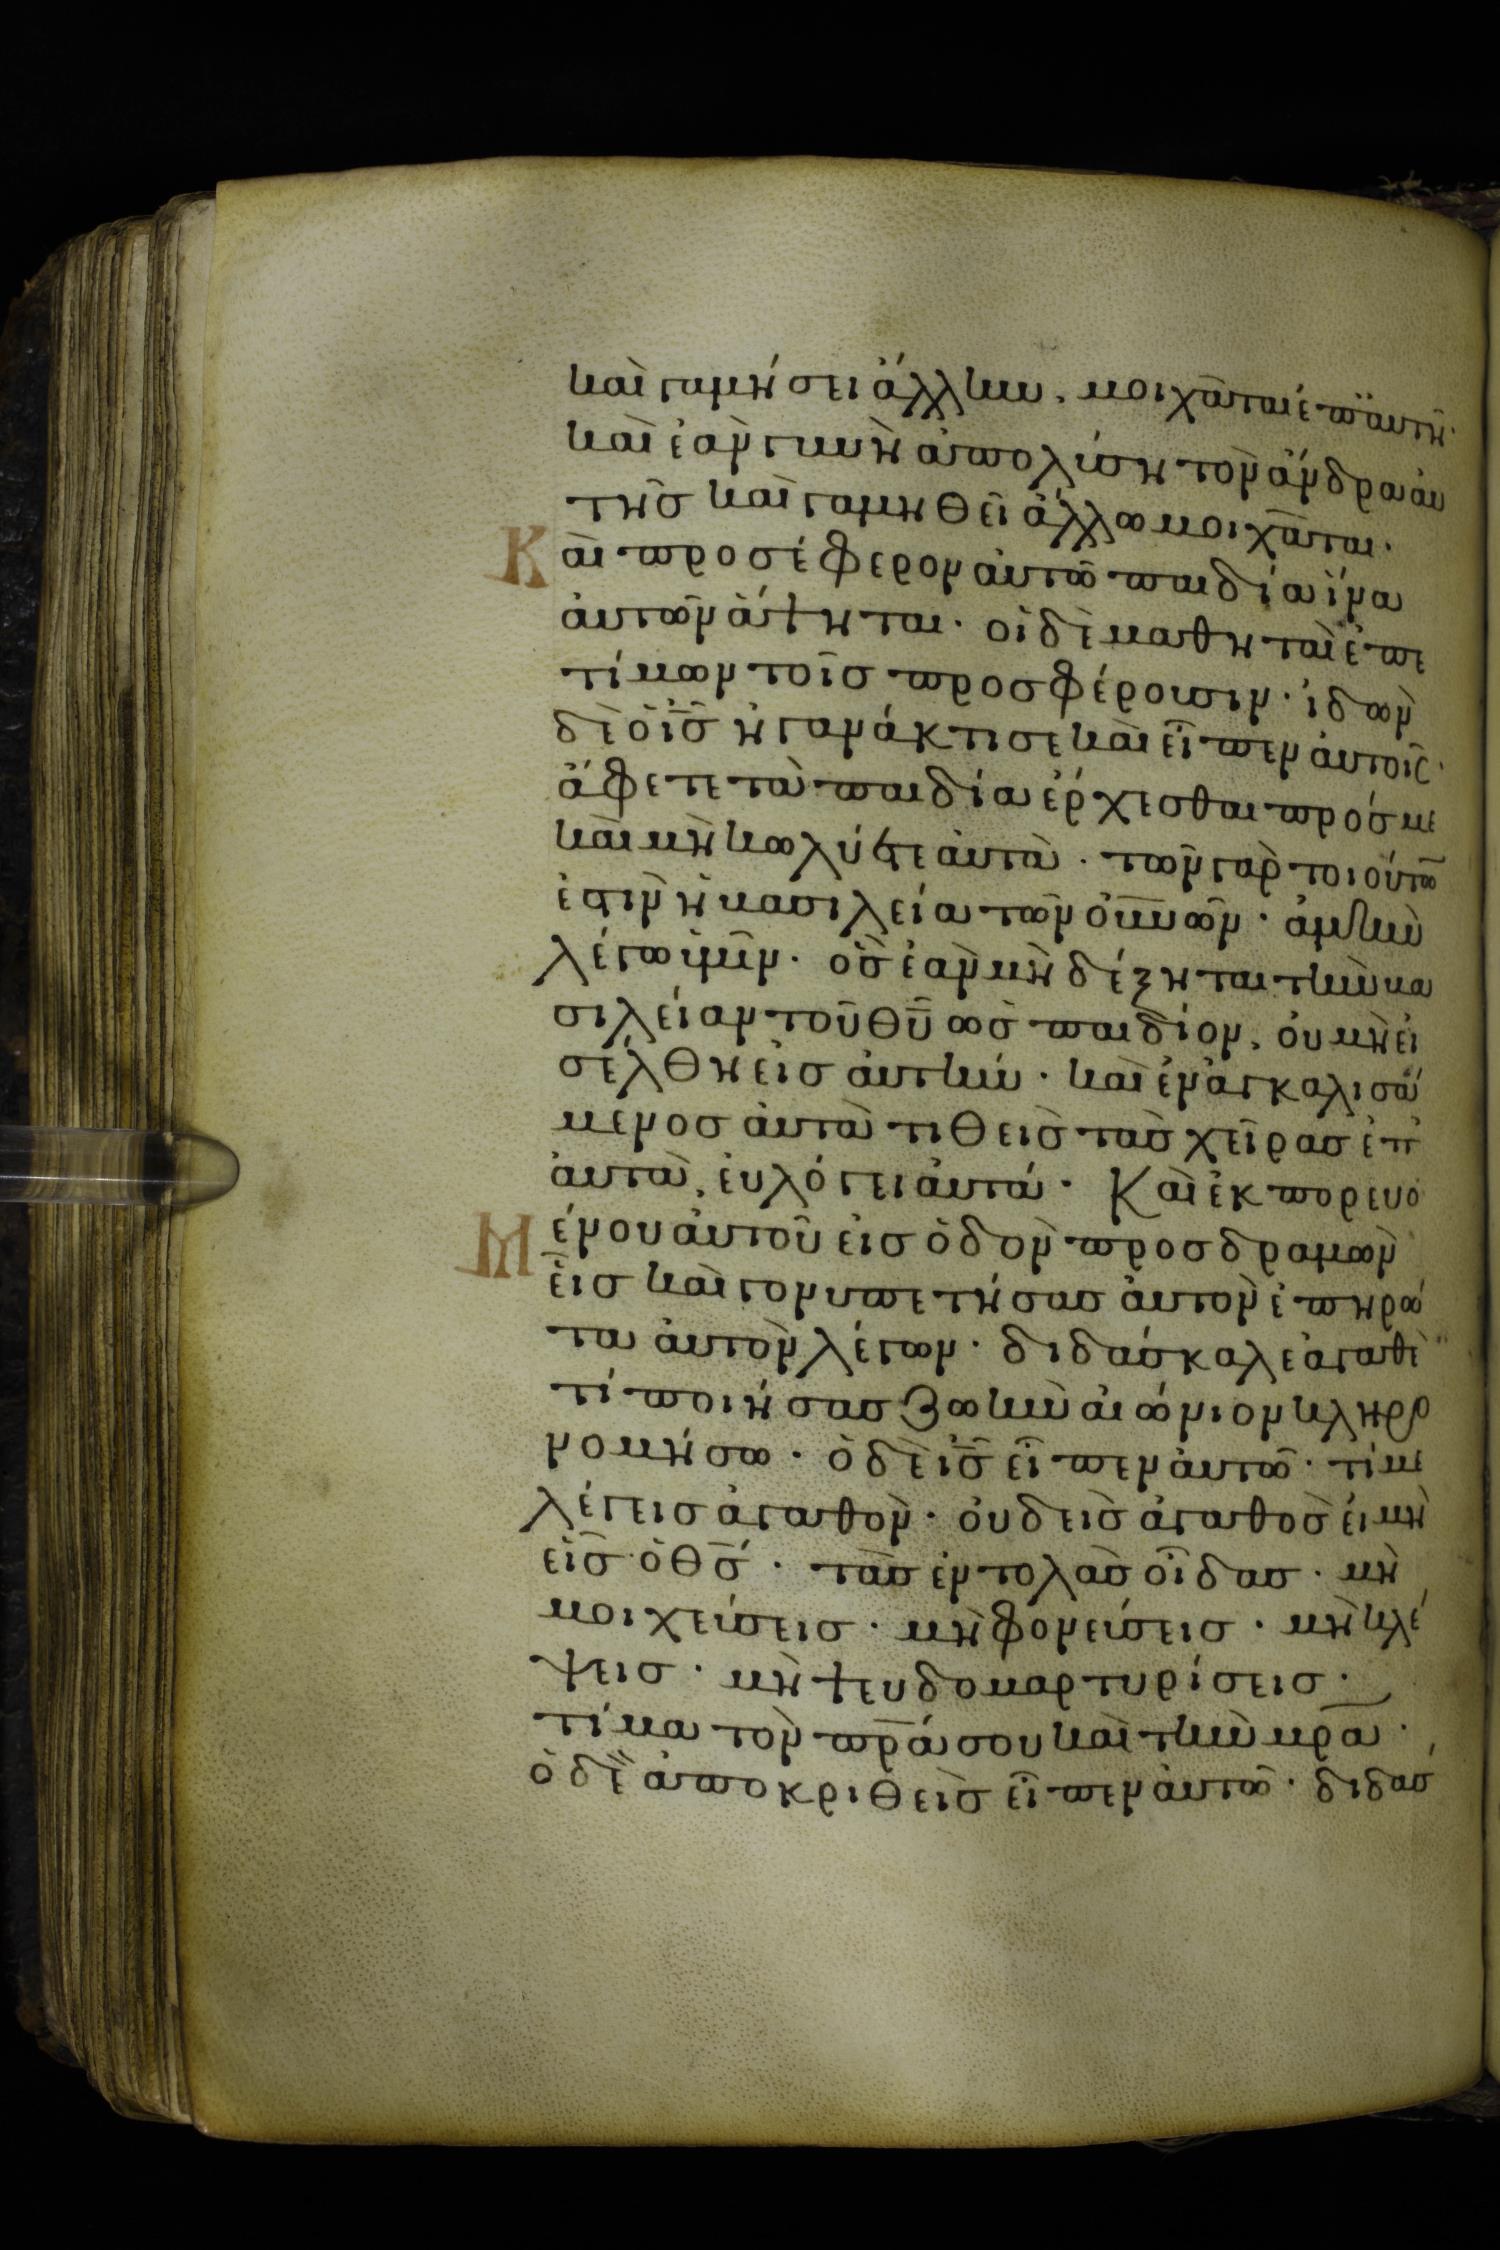 καὶ γαμήσει ἄλλην, μοιχᾶται ἐπ αυτὴ·
καὶ ἐὰν γυνὴ ἀπολύση τὸν ἄνδρα ἁυ
τῆς καὶ γαμηθεῖ ἄλλω μοιχᾶται·
Κὰι προσέφερον ἀυτῶ παιδία ἵνα
ἀυτῶν ἅψηται· οἱ δὲ μαθηταὶ ἐπε
τίμων τοῖς προσφέρουσιν· ἰδὼν
δὲ ὁ ις̅ ἠγανάκτισε καὶ εῖπεν ἀυτοῖς·
ἄφετε τὰ παιδία ἐρχεσθαι πρός με
καὶ μὴ κωλύετε ἀυτὰ · τῶν γὰρ τοιούτω̅
ἐστιν ἡ βασιλεία τῶν ουνῶν · ἀμὴν
λέγω ὑμῖν · ὃς ἐὰν μὴ δέξηται τὴν βα
σιλείαν τοῦ θυ̅ ὡς παιδίον, ὀυ μὴ εἰ
σέλθη εἰς ἀυτήν · καὶ ἐναγκαλισά
μενος ἀυτὰ τιθεὶς τὰς χεῖρας ἐπ
ἀυτὰ, ἐυλόγει ἀυτά · Καὶ ἐκπορευο
Μένου ἀυτοῦ εἰς ὁδὸν προσδραμὼν
εῖς καὶ γονυπετήσας ἀυτὸν ἐπηρώ
τα ἀυτὸν λέγων · διδάσκαλε ἀγαθὲ
τί ποιήσας ζωὴν ἀιώνιον κληρο
νομήσω · ὁ δὲ ις̅ εῖπεν ἀυτῶ · τί με
λέγεις ἀγαθὸν · ὀυδεὶς ἀγαθὸς εἰ μὴ
εῖς ὁ θς̅ · τὰς ἐντολὰς οῖδας · μὴ
μοιχεύσεις · μὴ φονεύσεις · μὴ κλέ
ψεις · μὴ ψευδομαρτυρίσεις ·
τίμα τὸν πρ̅α σου καὶ τὴν μρ̅α ·
ὁ δὲ ἀποκριθεὶς εῖπεν ἀυτῶ · διδάσ